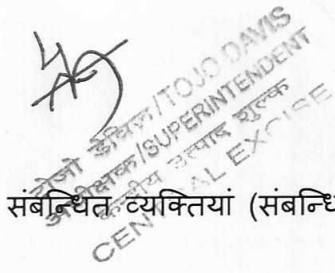 टोजो डेविस/TOJO DAVIS
अधीक्षक/SUPERINTENDENT
केन्द्रीय उत्पाद शुल्क
CENTRAL EXCISE
संबन्धित व्यक्तियां (संबन्धि